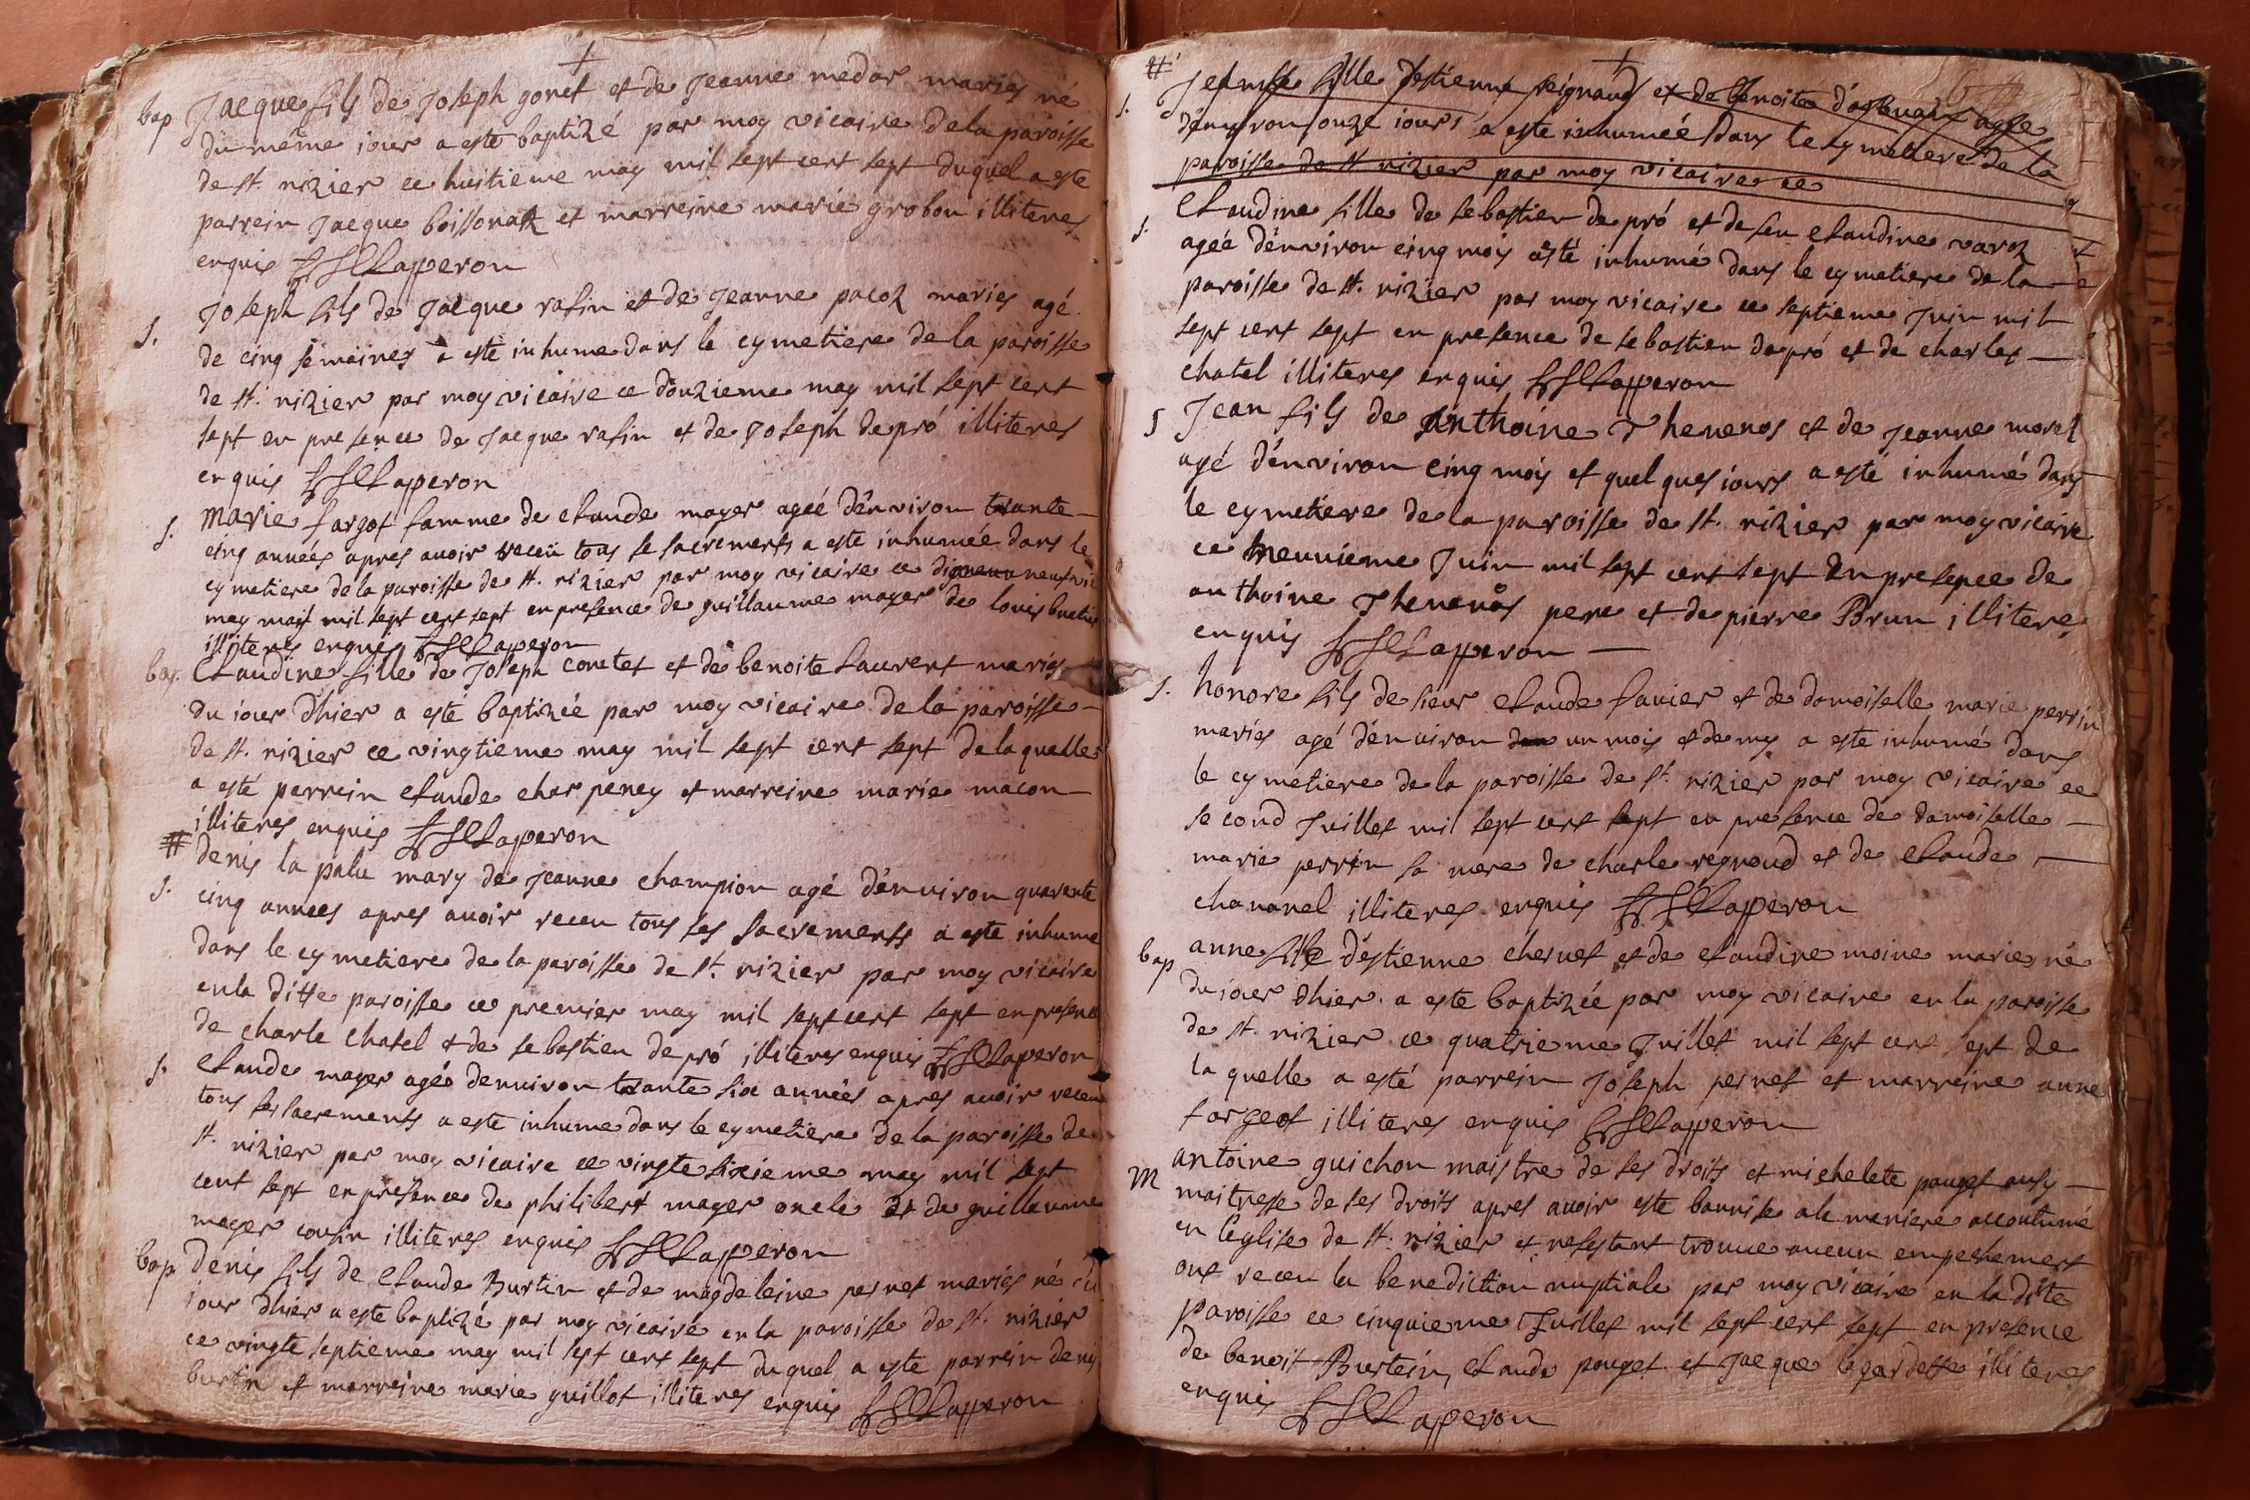 bap Jacque fils de Joseph gonet et de Jeanne medar mariés né
du même iour a esté baptizé par moy vicaire de la paroisse
de st. nizier ce huitieme may mil sept cent sept duquel a este
parrein Jacque boissonat et marreine marie grobon illiteres
enquis Claperon
S. Joseph fils de Jacque rafin et de Jeanne pacoz mariés agé
de cinq semaines a esté inhume dans le cymetiere de la paroisse
de st. nizier par moy vicaire ce douzieme may mil sept cent
sept en presence de Jacque rafin et de Joseph depró illiteres
enquis Claperon
S. marie fargot famme de claude mayer ageé d'environ trante
cinq années apres avoir receu tous se sacrements a este inhumée dans le
cymetiere de la paroisse de st. nizier par moy vicaire ce
may mil sept cent sept en presence de guillaume mayer de louis
illiteres enquis Claperon
bap. Claudine fille de Joseph contet et de benoite laurent mariés
du iour dhier a esté baptizée par moy vicaire de la paroisse
de st. nizier ce vingtieme may mil sept cent sept de la quelle
a esté perrein claude charpeney et marreine marie macon
illiteres enquis Claperon
#
S. denis la palu mary de Jeanne champion agé d'enuiron quarente
cinq années apres auoir receu tous ses sacrements a este inhume
dans le cymetiere de la paroisse de st. nizier par moy vicaire
en la ditte paroisse ce premier may mil sept cent sept en presence
de charle chatel et de sebastien depró illiteres enquis Claperon
S. Claude mayer agée denuiron trante six années apres auoir receu
tous ses sacrements a este inhume dans le cymetiere de la paroisse de
st. nizier par moy vicaire ce vingte sixieme may mil sept
cent sept en presence de philibert mayer oncle et de guillaume
mayer cousin illiteres enquis Claperon
bap denis fils de claude Burtin et de magdeleine pernet mariés né du
iour dhier a este baptizé par moy vicaire en la paroisse de st. nizier
ce vingte septieme may mil sept cent sept du quel a este parrein denis
burtin et marreine marie guillot illiteres enquis Claperon
#
S. fille destienne reignaud et de benoite agée
d'environ onze iours a este inhumeé dans le cymetiere de la
paroisse de st nizier par moy vicaire ce
S. Claudine fille de sebastien de pró et de feu claudine
ageé d'environ cinq mois a esté inhumé dans le cymetiere de la
paroisse de st. nizier par moy vicaire ce septieme Juin mil
sept cent sept en presence de sebastien depró et de charles
chatel illiteres enquis Claperon
S Jean fils de Anthoine Thevenos et de Jeanne morel
agé d'environ cinq mois et quelques iours a esté inhumé dans
le cymetiere de la paroisse de st. nizier par moy vicaire
ce neuuieme Juin mil sept cent sept En presence de
anthoine Thevenos pere et de pierre Brun illiteres
enquis Claperon
S. honore fils de sieur claude fauier et de damoiselle marie perrin
mariés agé d'enuiron un mois et demy a este inhumé dans
le cymetiere de la paroisse de st. nizier par moy vicaire ce
second Juillet mil sept cent sept en presence de damoiselle
marie perrin sa mere de charle regnoud et de claude
chavanel illiteres enquis Claperon
bap anne fille d'estienne chernet et de claudine moine marie né
du iour dhier a este baptizée par moy vicaire en la paroisse
de st. nizier ce quatrieme Juillet mil sept cent sept de
la quelle a esté parrein Joseph pernet et marreine anne
fargeot illiteres enquis Claperon
M antoine guichon maistre de ses droits et michelete pouget ausy
maitresse de ses droits apres auoir este bannise a la meniere accoutumé
en l'eglise de st. nizier et ne sestant trouue aucun empechement
ont receu la benediction nuptiale par moy vicaire en la dite
paroisse ce cinquieme Juillet mil sept cent sept en presence
de benoit Burtein, claude pouget et Jacque lagardette illiteres
enquis Claperon